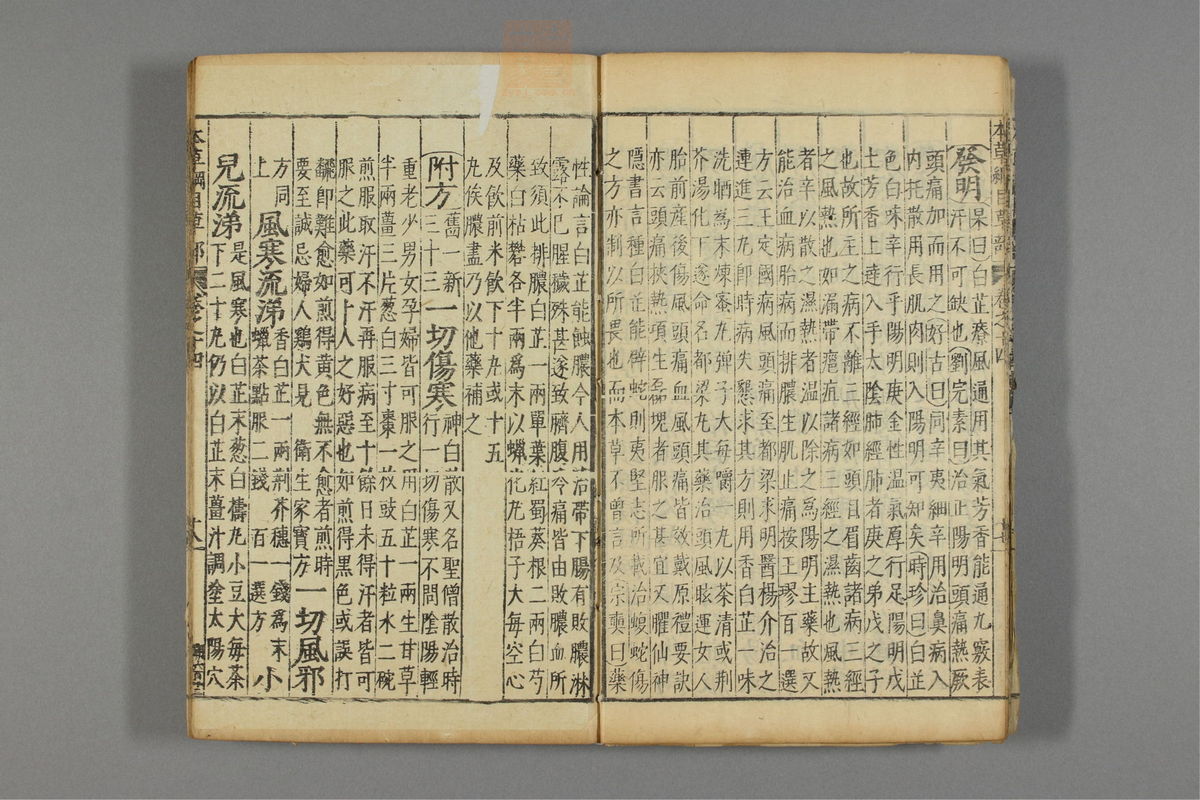 發明杲曰白芷療風通用其氣芳香能通九竅表
汗不可缺也劉完素曰治正陽明頭痛熱厥
頭痛加而用之好古曰同辛夷細辛用治鼻病入
內托散用長肌肉則入陽明可知矣時珍曰白芷
色白味辛行手陽明庚金性溫氣厚行足陽明戊
土芳香上達入手太陰肺經肺者庚之弟戊之子
也故所主之病不離三經如頭目眉齒諸病三經
之風熱也如漏帶癰疽諸病三經之濕熱也風熱
者辛以散之濕熱者溫以除之爲陽明主藥故又
能治血病胎病而排膿生肌止痛按王璆百一選
方云王定國病風頭痛至都梁求明醫楊介治之
連進三丸即時病失懇求其方則用香白芷一味
洗晒爲末煉蜜丸彈子大每嚼一丸以茶清或荆
芥湯化下遂命名都梁丸其藥治頭風眩運女人
胎前産後傷風頭痛血風頭痛皆效戴原禮要訣
亦云頭痛挾熱項生磊塊者服之甚宜又臞仙神
隱書言種白芷能辟蛇則夷堅志所載治蝮蛇傷
之方亦制以所畏也而本草不曾言及宗奭曰藥
性論言白芷能蝕膿今人用治帶下腸有敗膿淋
露不已腥穢殊甚遂致臍腹冷痛皆由敗膿血所
致須此排膿白芷一兩單葉紅蜀葵根二兩白芍
藥白枯礬各半兩爲末以蠟化丸梧子大每空心
及飲前米飲下十丸或十五
丸俟膿盡乃以他藥補之
附方舊一新三十三一切傷寒神白散又名聖僧散治時
行一切傷寒不問陰陽輕
重老少男女孕婦皆可服之用白芷一兩生甘草
半兩薑三片葱白三寸棗一枚豉五十粒水二碗
煎服取汗不汗再服病至十餘日未得汗者皆可
服之此藥可卜人之好惡也如煎得黑色或誤打
翻即難愈如煎得黃色無不愈者煎時
要至誠忌婦人鷄犬見　衛生家寶方一切風邪
方同上　風寒流涕香白芷一兩荆芥穗一錢爲末
蠟茶點服二錢　百一選方　小
兒流涕是風寒也白芷末葱白擣丸小豆大每茶
下二十丸仍以白芷末薑汁調塗太陽穴